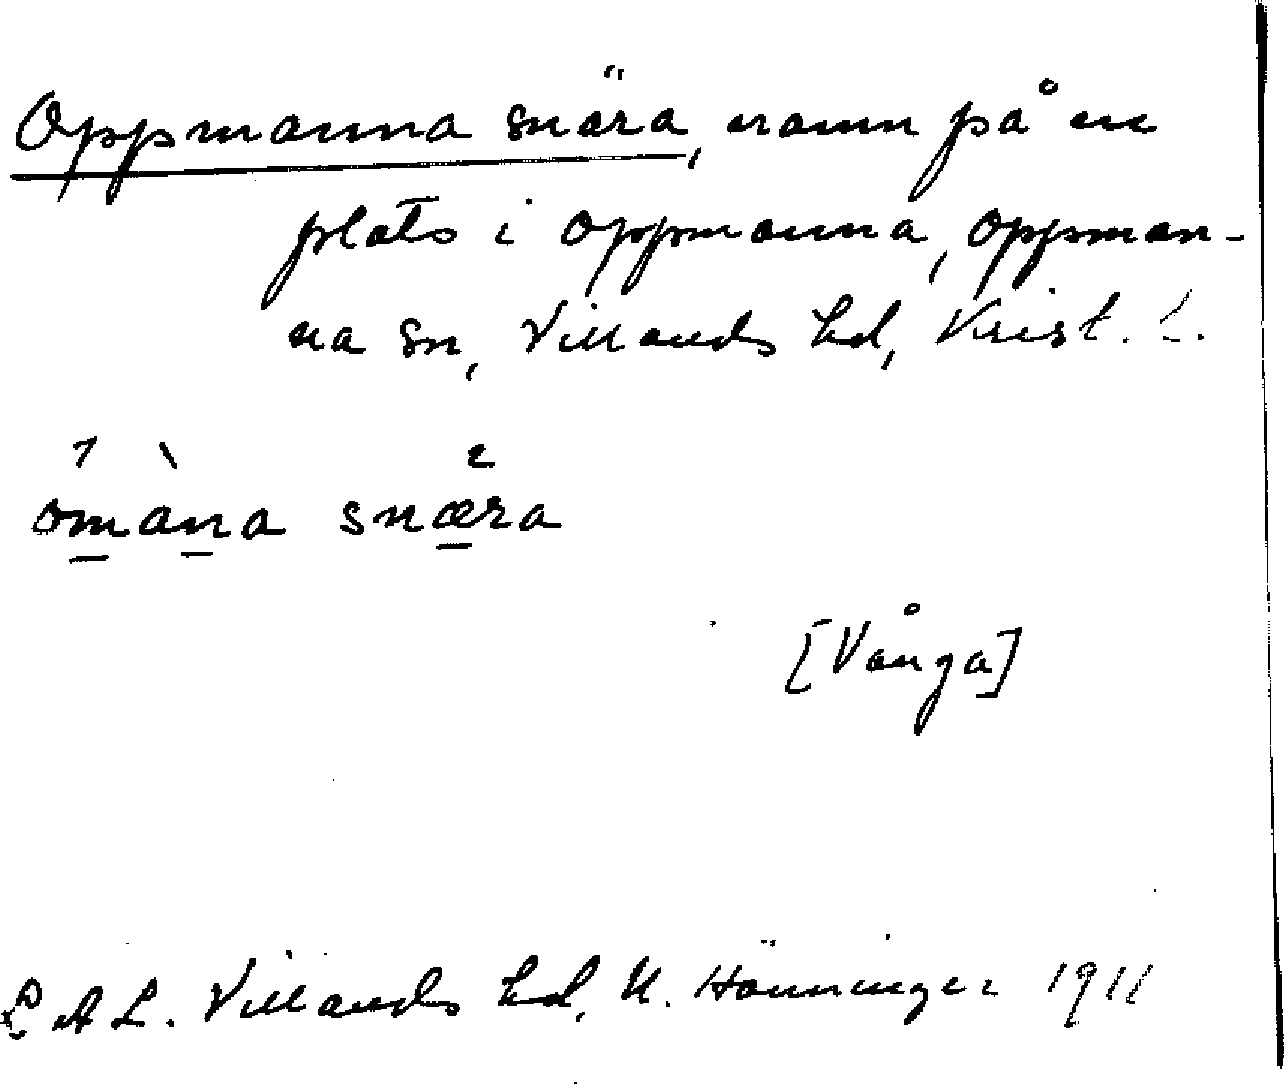 Oppmanna snära, namn på en
plats i Oppmanna, Oppman-
na sn, Villands hd, Krist. L.
omàna snæra
[Vånga]
L A L. Villands hd, N. Hänninger 1911